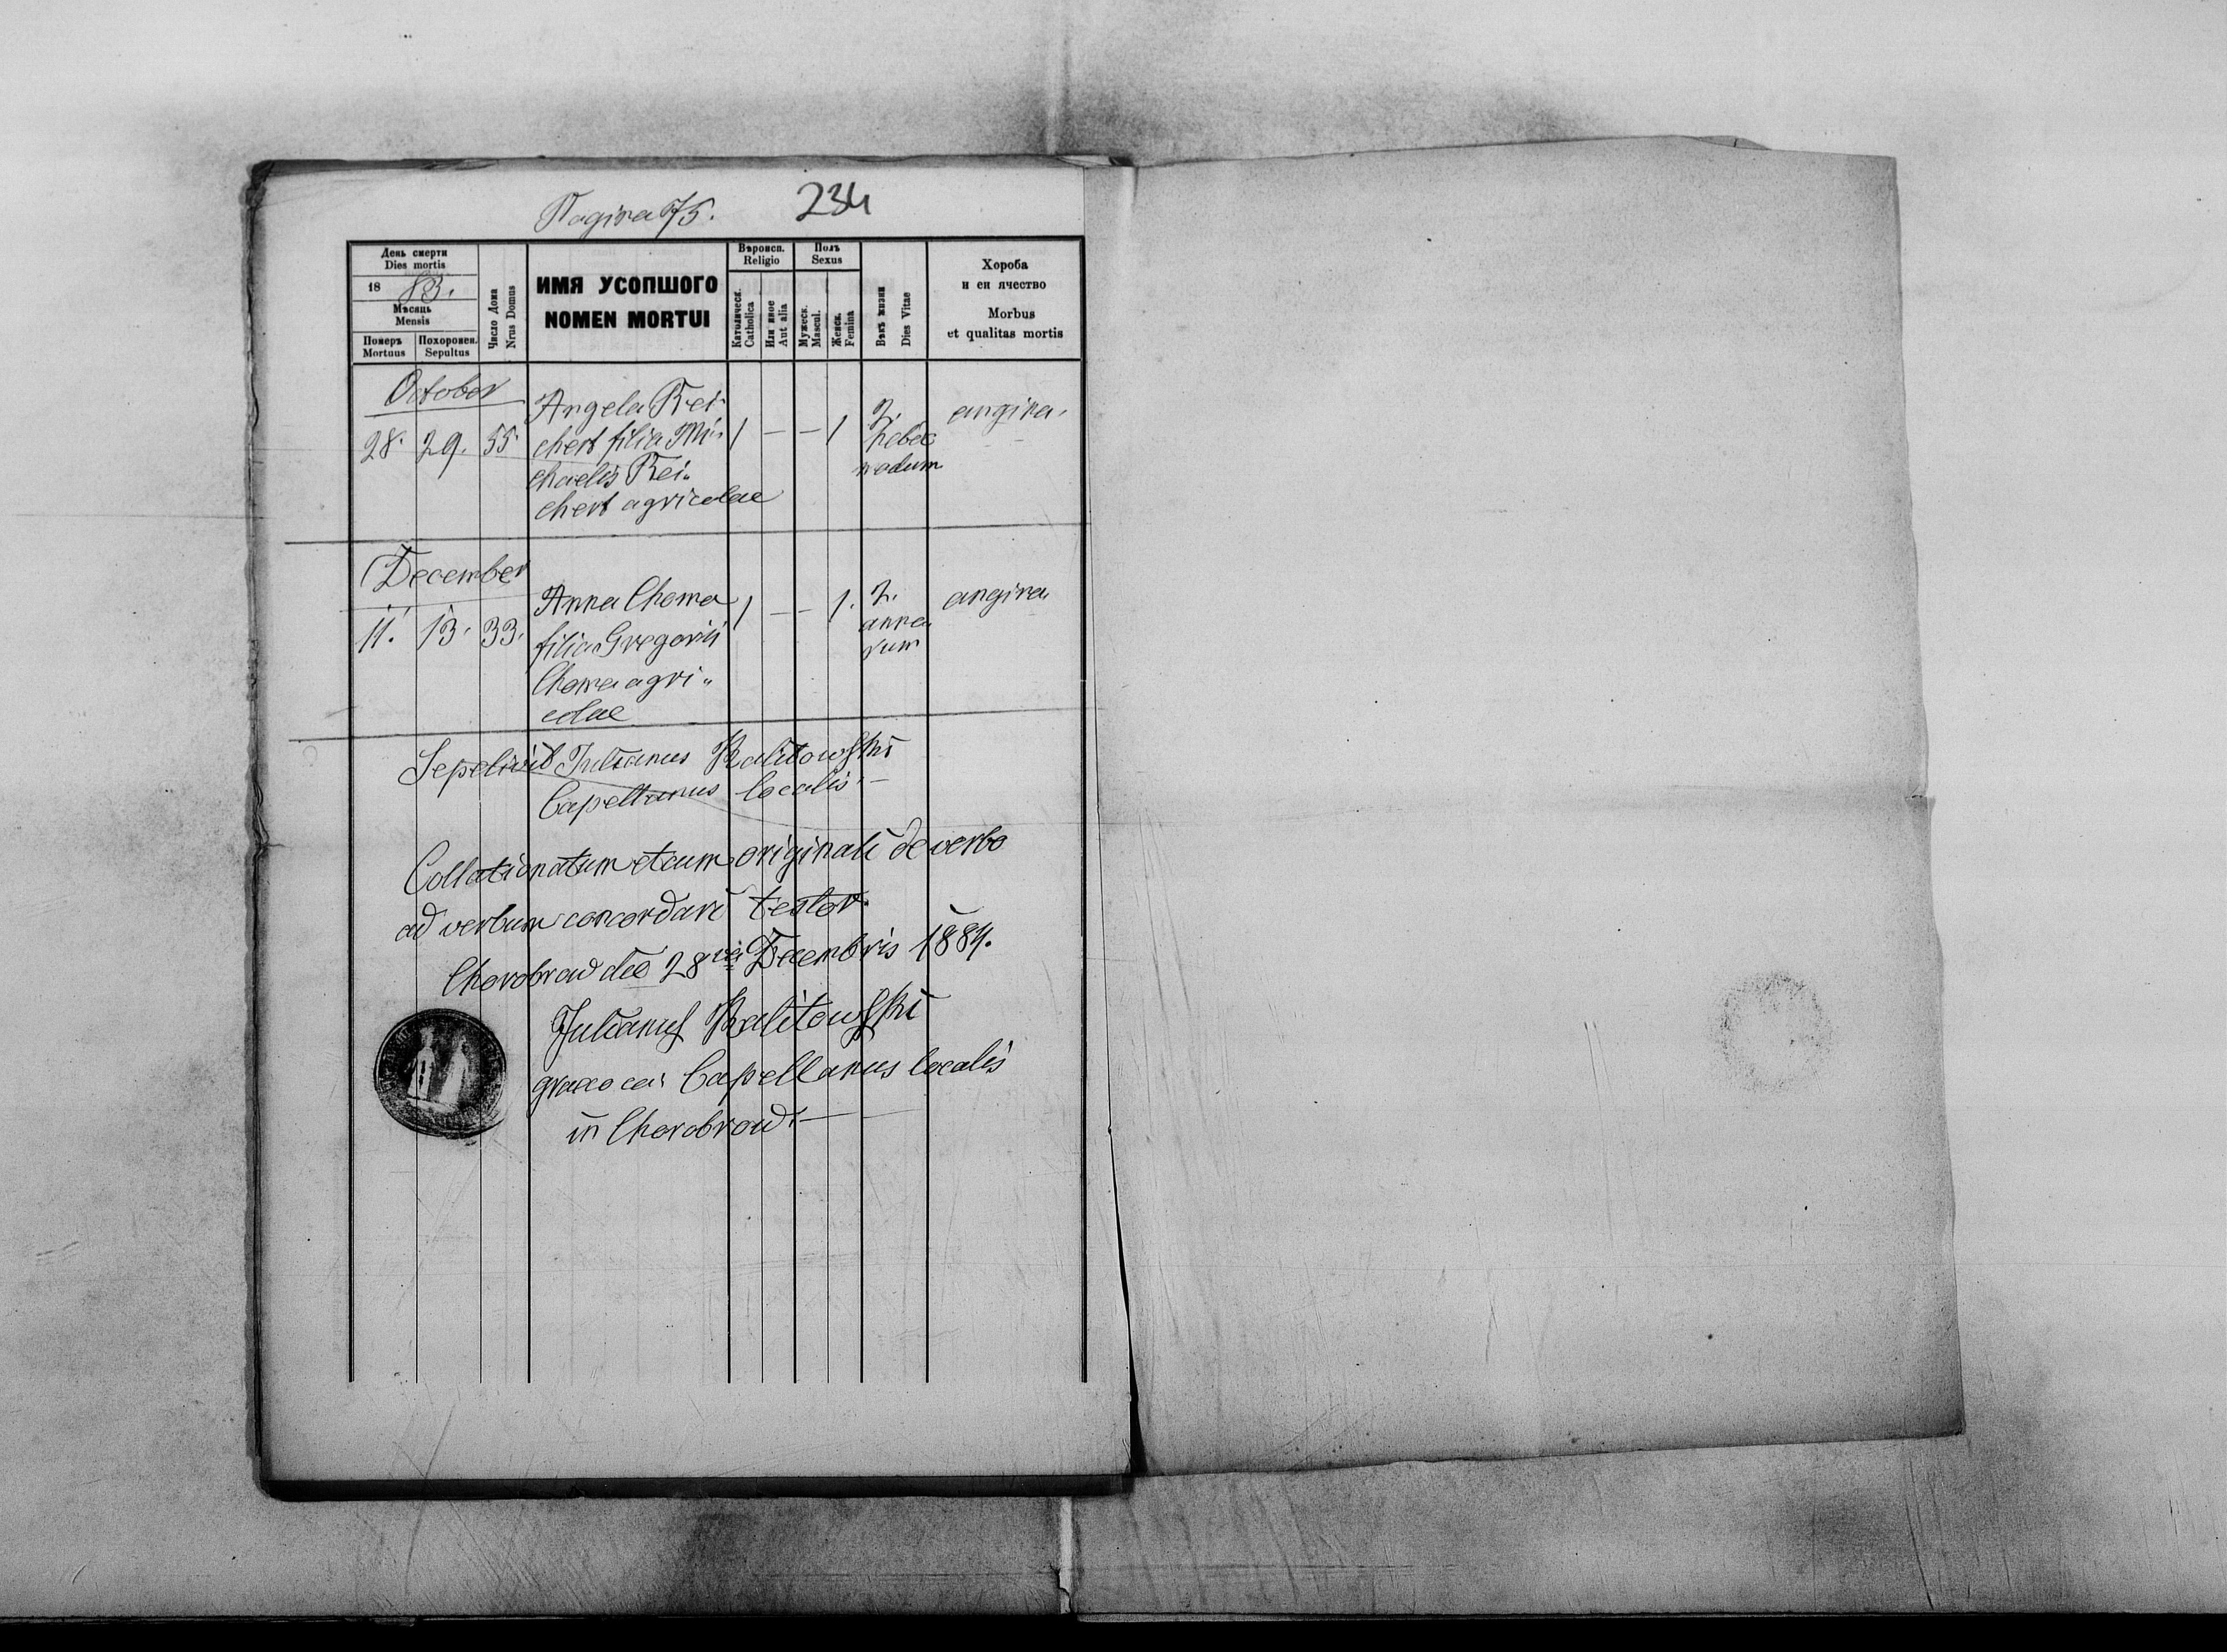 Pagina 75. 234
День смерти
Dies mortis
18 83.
Мѣсяць
Mensis
Померъ
Mortuus
Похоронен.
Sepultus
Число Дома
Nrus Domus
ИМЯ УСОПШОГО
NOMEN MORTUI
Вѣроисп.
Religio
Католическ.
Catholica
Или иное
Aut alia
Полъ
Sexus
Мужеск.
Mascul.
Женск.
Femina
Вѣкъ жизни
Dies Vitae
Хороба
и еи ячество
Morbus
et qualitas mortis
October
28. 29. 55. Angela Rei-
chert filia Mi-
chaelis Rei-
chert agricolae
1 — — 1
2.
hebdo
madum
angina.
December
11. 13. 33. Anna Choma
filia Gregorii
Choma agri-
colae
1 — — 1.
2.
anno
rum
angina
Sepelivit Julianus Kalitowski
Capellanus localis.—
Collationatum et cum originali de verbo
ad verbum concordari testor.
Chorobrow die 28 Decembris 1884.
Julianus Kalitowski
graeco cat. Capellanus localis
in Chorobrow.—